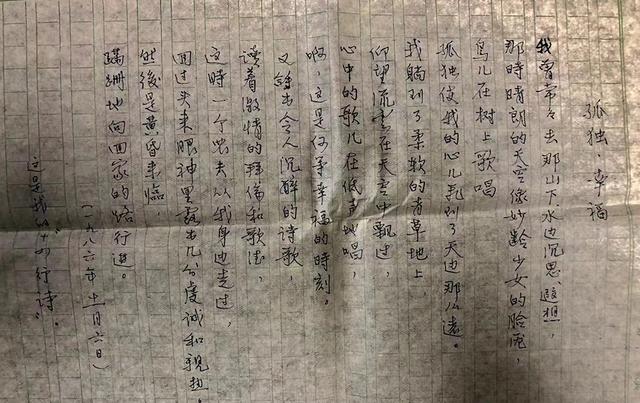 孤独·幸福
我曾常々去那山下、水边沉思、遐想，
那時晴朗的天空像妙龄少女的脸庞，
鸟儿在树上歌唱
孤独使我的心儿飞到了天边那么遠。
我躺到了柔软的青草地上，
仰望流云在天空中飘过，
心中的歌儿在低声地唱，
啊，这是何等幸福的時刻。
又翻出令人沉醉的诗歌
讀着激情的拜倫和歌德，
这時一个农夫从我身边走过，
回过头来眼神里露出几分虔诚和親热。
然後是黄昏来臨，
蹒跚地向回家的路行進。
（一九八六年十一月六日）
“这是我的十四行诗。”